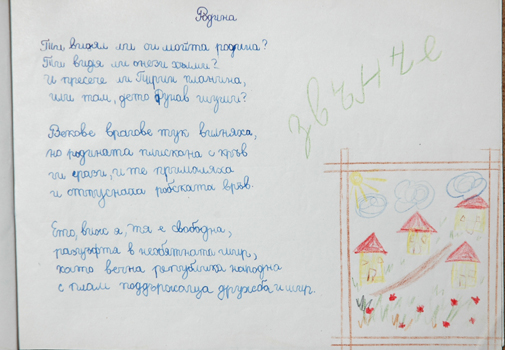 Родина
Ти видял ли си мойта родина?
Ти видя ли онези хълми?
И пресече ли Пирин планина,
или там, дето Дунав шуми?
Векове врагове тук вилняха,
но родината плискана с кръв
ги срази, и те примоляха
и отпуснаха робската връв.
Ето, виж я, тя е свободна,
разцъфта в необятната шир,
като вечна република народна
с плам поддържаща дружба и мир.
звънче